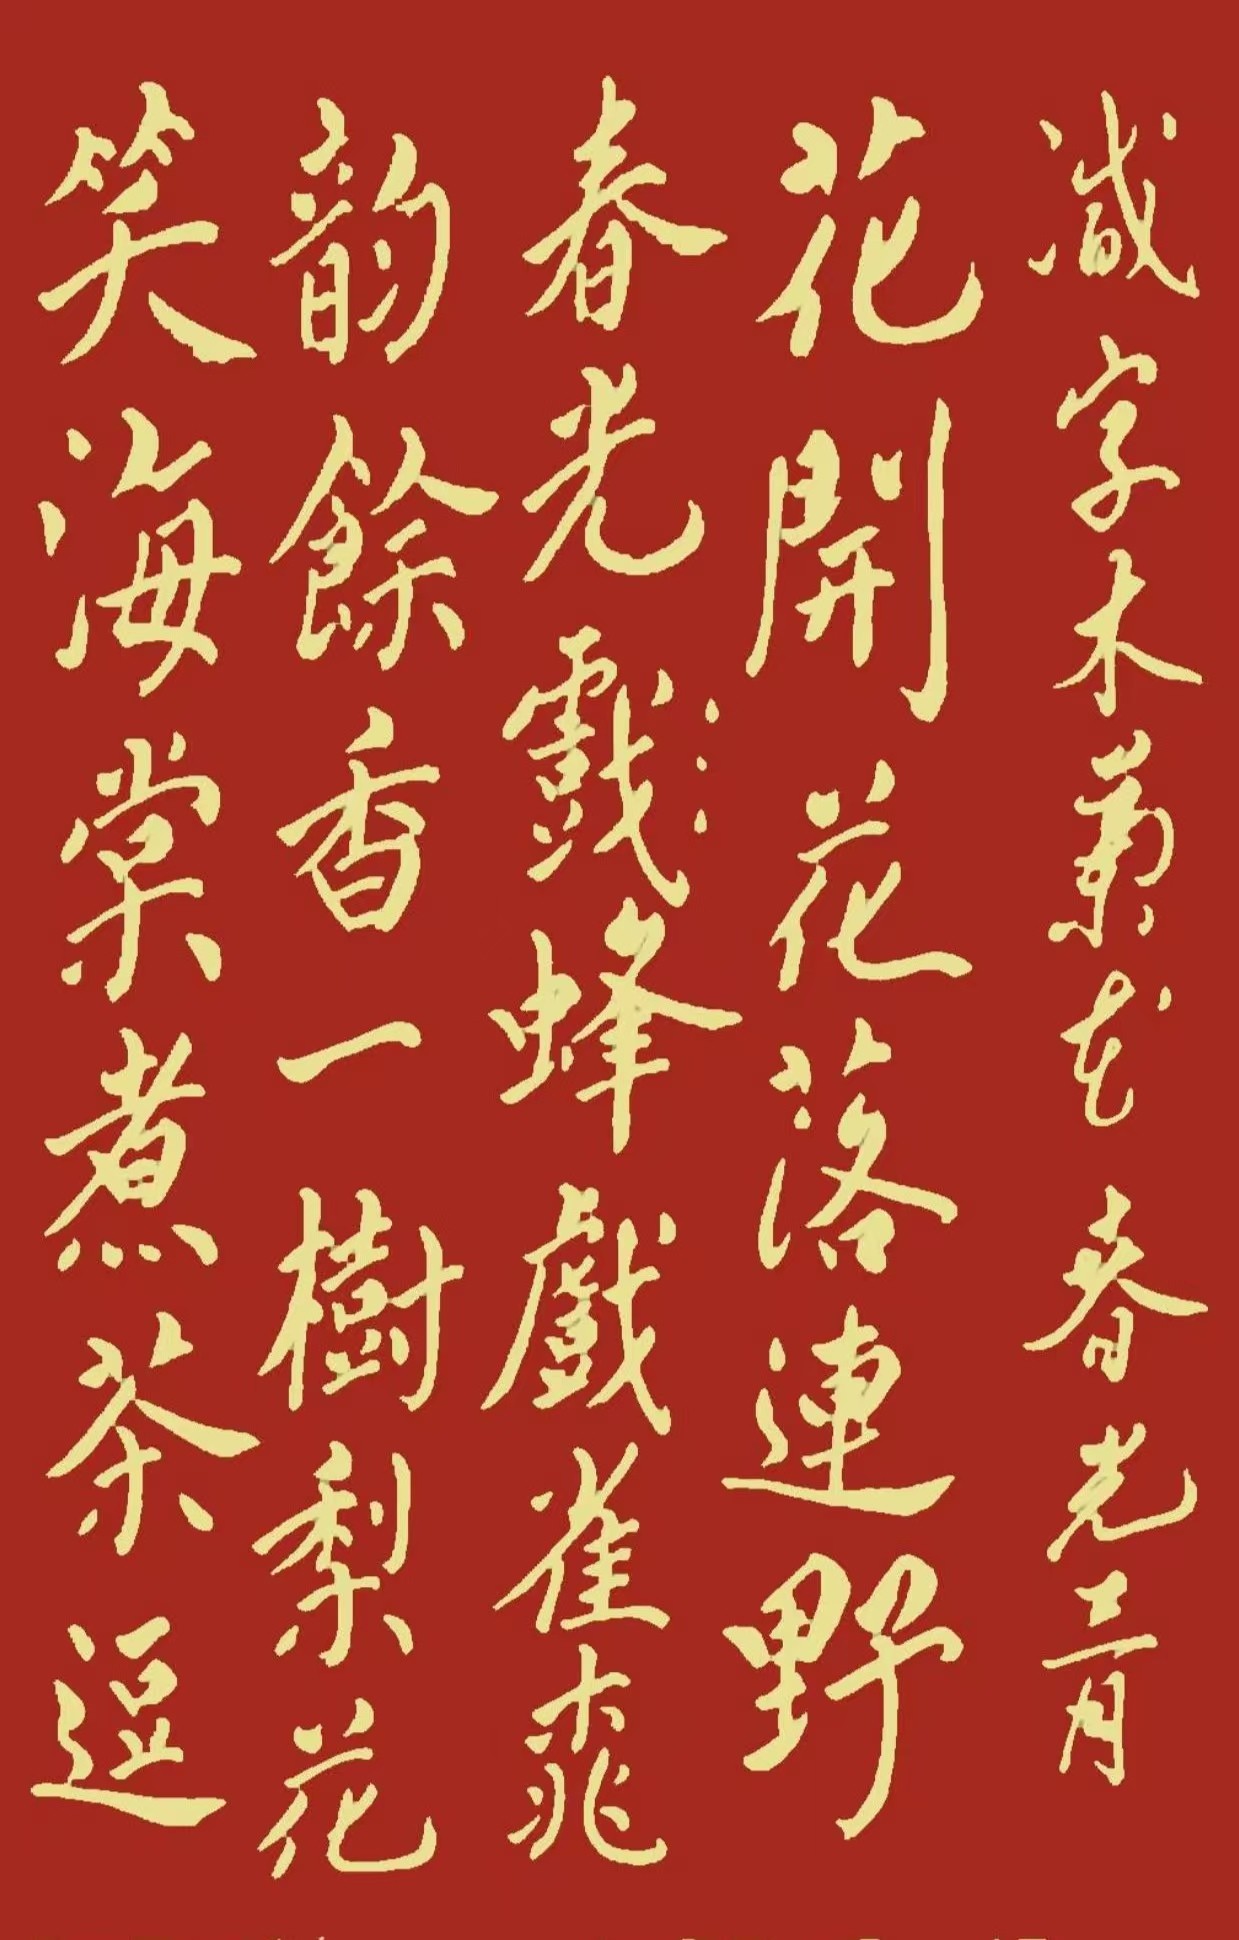 减字木蘭花 春光青
花開花落連野
春光戲蜂戲雀桃
韵餘香一樹梨花
笑海棠煮茶逗